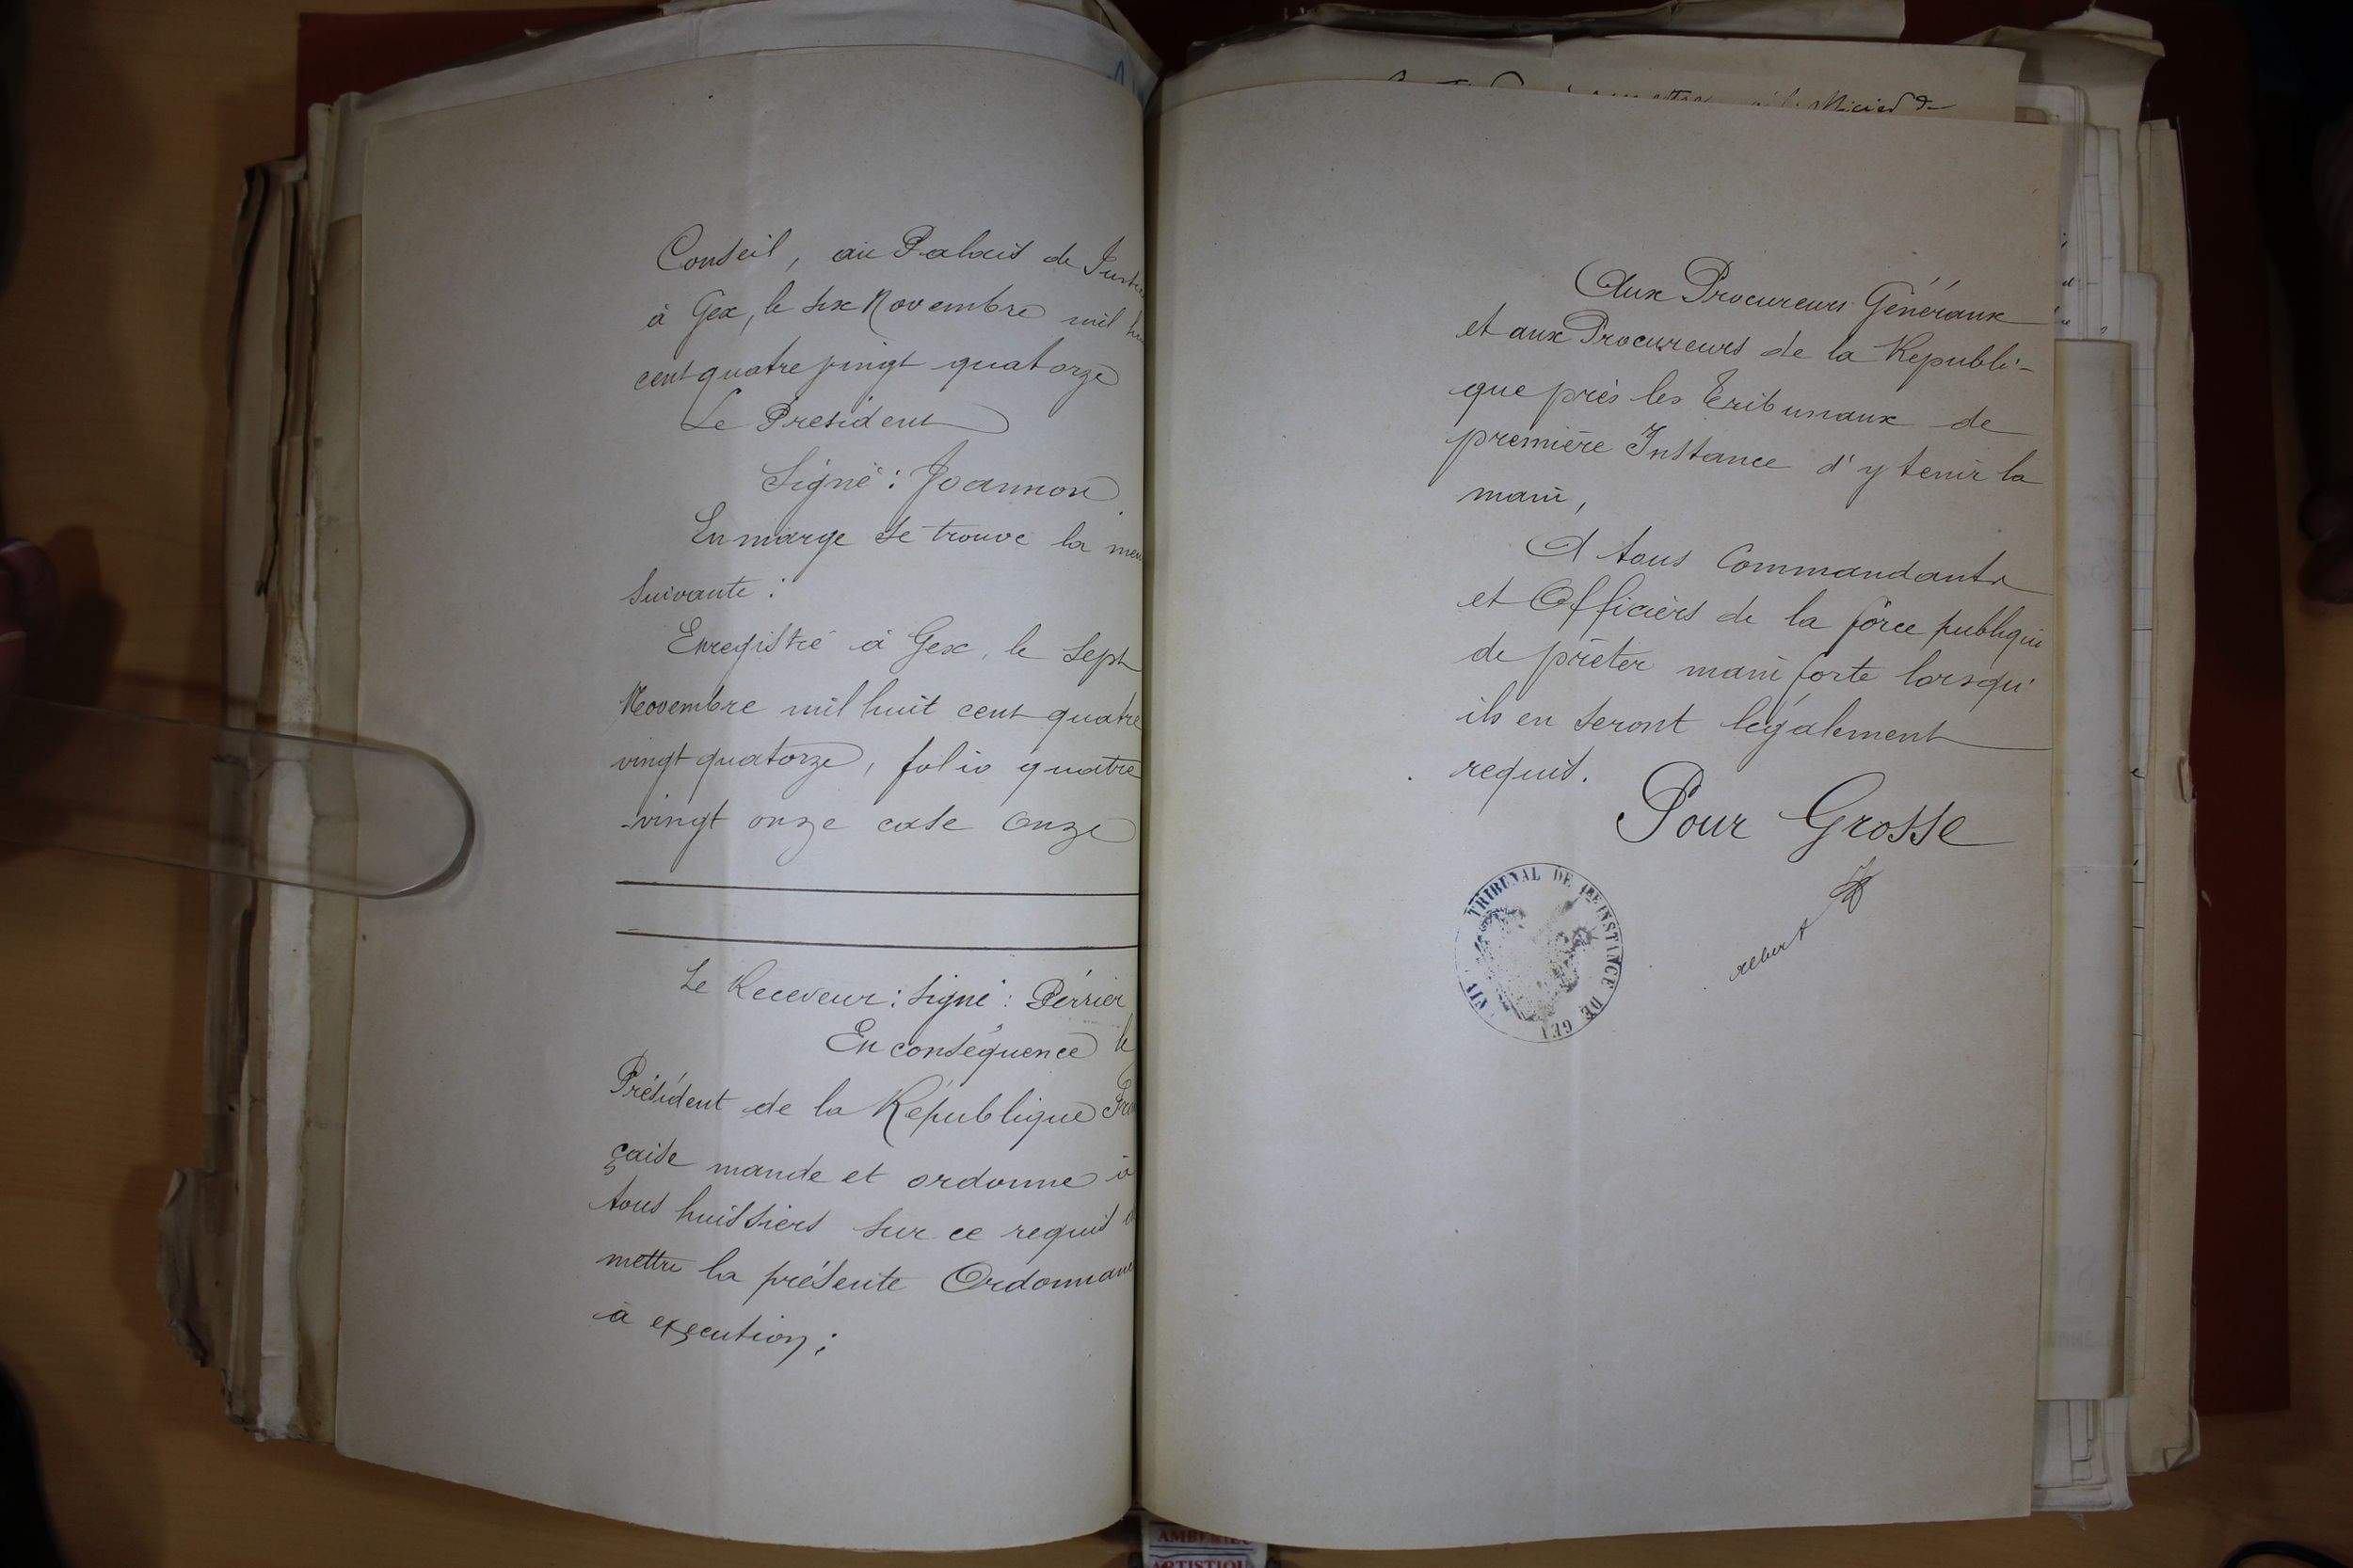 Conseil, au Palais de Justice
à Gex, le six Novembre mil
cent quatre vingt quatorze
Le Président
Signé : Joannon
En marge se trouve la
suivante :
Enregistré à Gex, le Sept
Novembre mil huit cent quatre
vingt quatorze, folio quatre
-vingt onze case onze
Le Receveur : Signé : Périer
En conséquence le
Président de la République Fran
çaise mande et ordonne à
tous huissiers sur ce requis
mettre la présente Ordonnance
à exécution ;
Aux Procureurs Généraux
et aux Procureurs de la Républi-
que près les Tribunaux de
première Instance d'y tenir la
main,
A tous Commandants
et Officiers de la force publique
de prêter main forte lorsqu'
ils en seront légalement
requis.
Pour Grosse
TRIBUNAL DE 1RE INSTANCE DE GEX
AIN